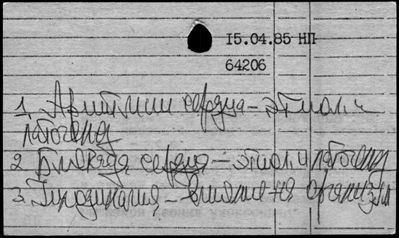 15.04.85 НП
64206
1. Аритмии сердца – этиол. и
патоген
2. Блокада сердца – этиол. и патоген
3. Гиподинамия – влияние на организм